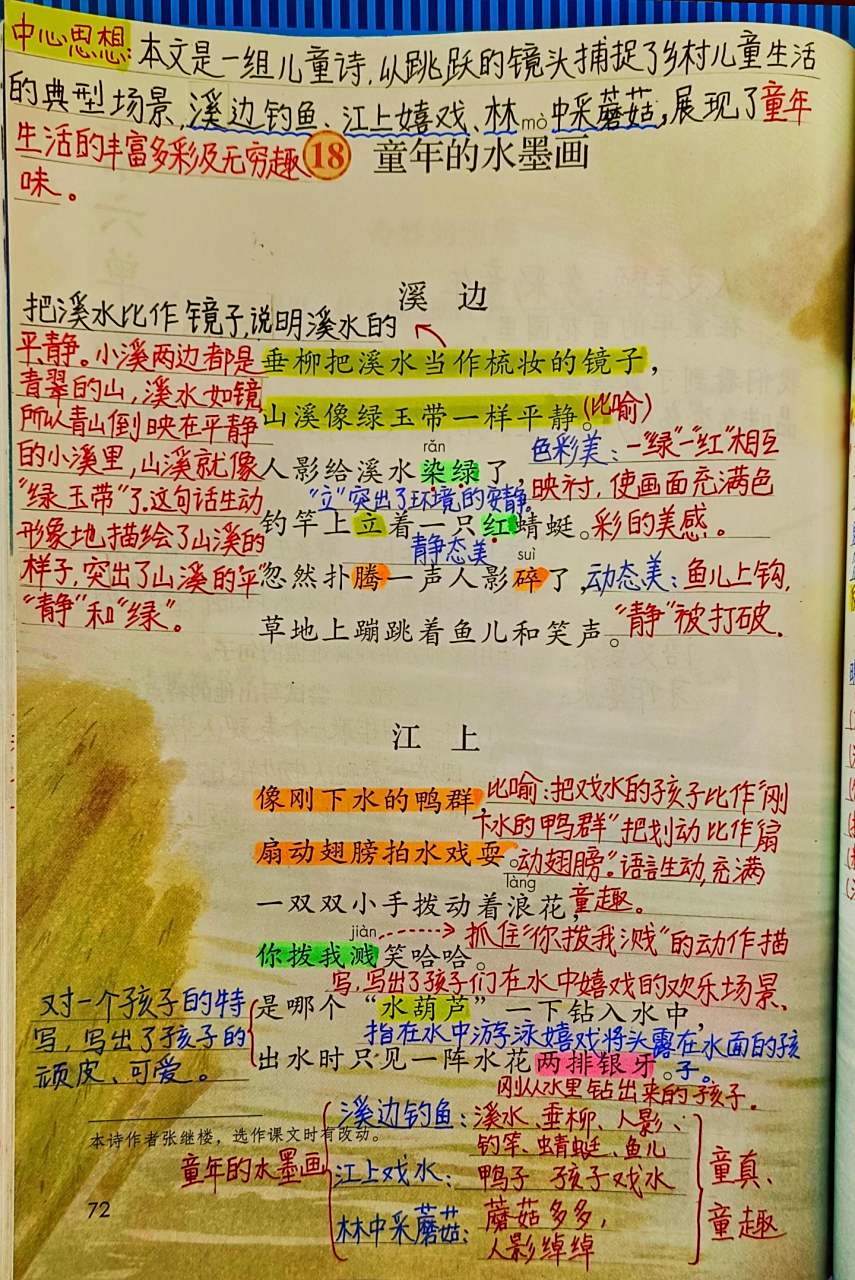 中心思想:本文是一组儿童诗,从跳跃的镜头捕捉了乡村儿童生活
的典型场景,溪边钓鱼、江上嬉戏、林中采蘑菇,展现了童年
生活的丰富多彩及无穷趣
味。
mò
18 童年的水墨画
溪 边
把溪水比作镜子,说明溪水的
平静。小溪两边都是
青翠的山,溪水如镜
所以青山倒映在平静
的小溪里,山溪就像
"绿玉带"了.这句话生动
形象地描绘了山溪的
样子,突出了山溪的"平"
"静"和"绿"。
垂柳把溪水当作梳妆的镜子,
山溪像绿玉带一样平静。(比喻)
rǎn
人影给溪水染绿了,
色彩美:一"绿"一"红"相互
映衬,使画面充满色
彩的美感。
"立"突出了环境的安静。
钓竿上立着一只红蜻蜓。
静态美
suì
忽然扑腾一声人影碎了,
动态美:鱼儿上钩,
"静"被打破.
草地上蹦跳着鱼儿和笑声。
江 上
像刚下水的鸭群,
比喻:把戏水的孩子比作"刚
下水的鸭群"把划动比作"扇
动翅膀".语言生动,充满
童趣。
扇动翅膀拍水戏耍。
làng
一双双小手拨动着浪花,
jiàn
你拨我溅笑哈哈。
抓住"你拨我溅"的动作描
写,写出了孩子们在水中嬉戏的欢乐场景、
对一个孩子的特
写,写出了孩子的
顽皮、可爱。
是哪个"水葫芦"一下钻入水中,
指在水中游泳嬉戏将头露在水面的孩
子。
出水时只见一阵水花两排银牙。
刚从水里钻出来的孩子.
本诗作者张继楼,选作课文时有改动。
童年的水墨画
溪边钓鱼:溪水、垂柳、人影、
钓竿、蜻蜓、鱼儿
江上戏水: 鸭子 孩子戏水
林中采蘑菇: 蘑菇多多,
人影绰绰
童真、
童趣
72